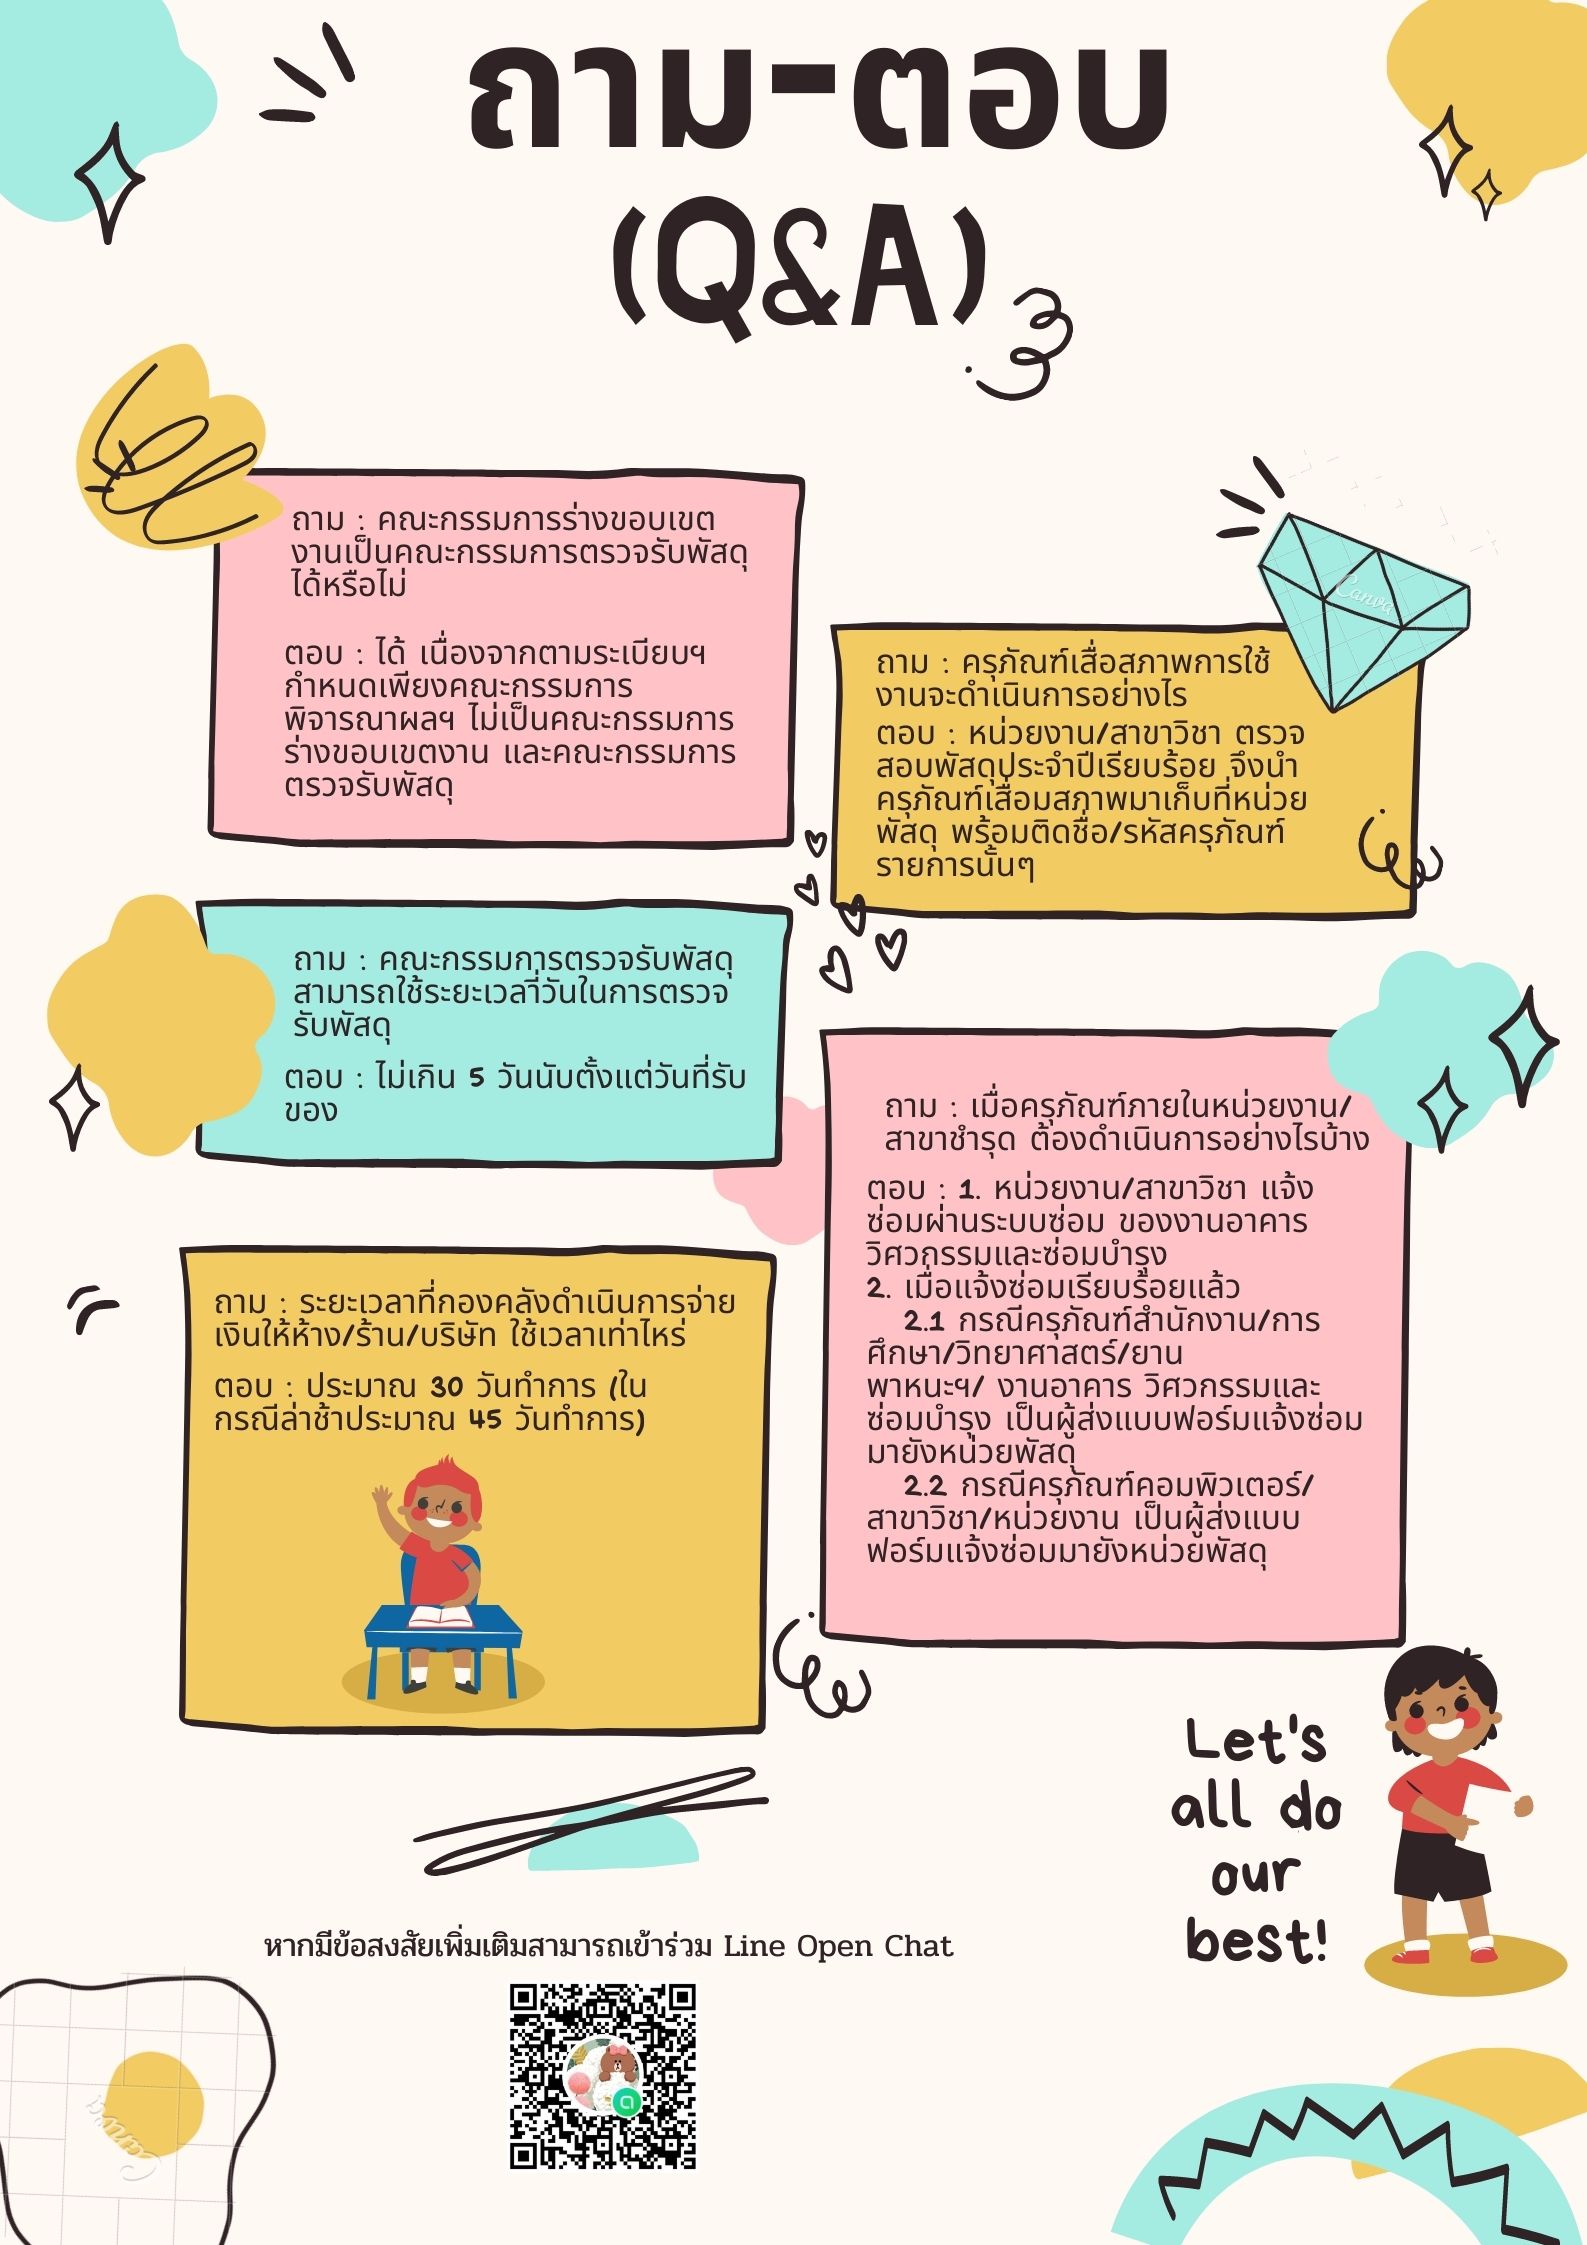 ถาม-ตอบ
(Q&A)
ถาม : คณะกรรมการร่างขอบเขต
งานเป็นคณะกรรมการตรวจรับพัสดุ
ได้หรือไม่
ตอบ : ได้ เนื่องจากตามระเบียบฯ
กำหนดเพียงคณะกรรมการ
พิจารณาผลฯ ไม่เป็นคณะกรรมการ
ร่างขอบเขตงาน และคณะกรรมการ
ตรวจรับพัสดุ
ถาม : ครุภัณฑ์เสื่อสภาพการใช้
งานจะดำเนินการอย่างไร
ตอบ : หน่วยงาน/สาขาวิชา ตรวจ
สอบพัสดุประจำปีเรียบร้อย จึงนำ
ครุภัณฑ์เสื่อมสภาพมาเก็บที่หน่วย
พัสดุ พร้อมติดชื่อ/รหัสครุภัณฑ์
รายการนั้นๆ
Canva
ถาม : คณะกรรมการตรวจรับพัสดุ
สามารถใช้ระยะเวลากี่วันในการตรวจ
รับพัสดุ
ตอบ : ไม่เกิน 5 วันนับตั้งแต่วันที่รับ
ของ
ถาม : เมื่อครุภัณฑ์ภายในหน่วยงาน/
สาขาชำรุด ต้องดำเนินการอย่างไรบ้าง
ตอบ : 1. หน่วยงาน/สาขาวิชา แจ้ง
ซ่อมผ่านระบบซ่อม ของงานอาคาร
วิศวกรรมและซ่อมบำรุง
2. เมื่อแจ้งซ่อมเรียบร้อยแล้ว
2.1 กรณีครุภัณฑ์สำนักงาน/การ
ศึกษา/วิทยาศาสตร์/ยาน
พาหนะฯ/ งานอาคาร วิศวกรรมและ
ซ่อมบำรุง เป็นผู้ส่งแบบฟอร์มแจ้งซ่อม
มายังหน่วยพัสดุ
2.2 กรณีครุภัณฑ์คอมพิวเตอร์/
สาขาวิชา/หน่วยงาน เป็นผู้ส่งแบบ
ฟอร์มแจ้งซ่อมมายังหน่วยพัสดุ
ถาม : ระยะเวลาที่กองคลังดำเนินการจ่าย
เงินให้ห้าง/ร้าน/บริษัท ใช้เวลาเท่าไหร่
ตอบ : ประมาณ 30 วันทำการ (ใน
กรณีล่าช้าประมาณ 45 วันทำการ)
Let's
all do
our
best!
หากมีข้อสงสัยเพิ่มเติมสามารถเข้าร่วม Line Open Chat
Canva